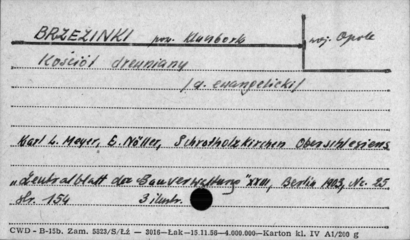 BRZEZINKI pow. Kluzbork woj. Opole
Kościół drewniany
/d. ewangelicki/
Karl L. Meyer, E. Nöller, Schrotholzkirchen Oberschlesiens
"Zentralblatt der Bauverwaltung" XXIII, Berlin 1903, Nr. 25
str. 154 3 ilustr.
CWD - B-15b. Zam. 5523/S/Łź — 2016—Łak—15.11.56—4.000.000—Karton kl. IV A1/200 g